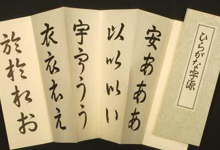 ひらがな字源
安あああ
以以いい
宇宇うう
衣衣ええ
於於おお